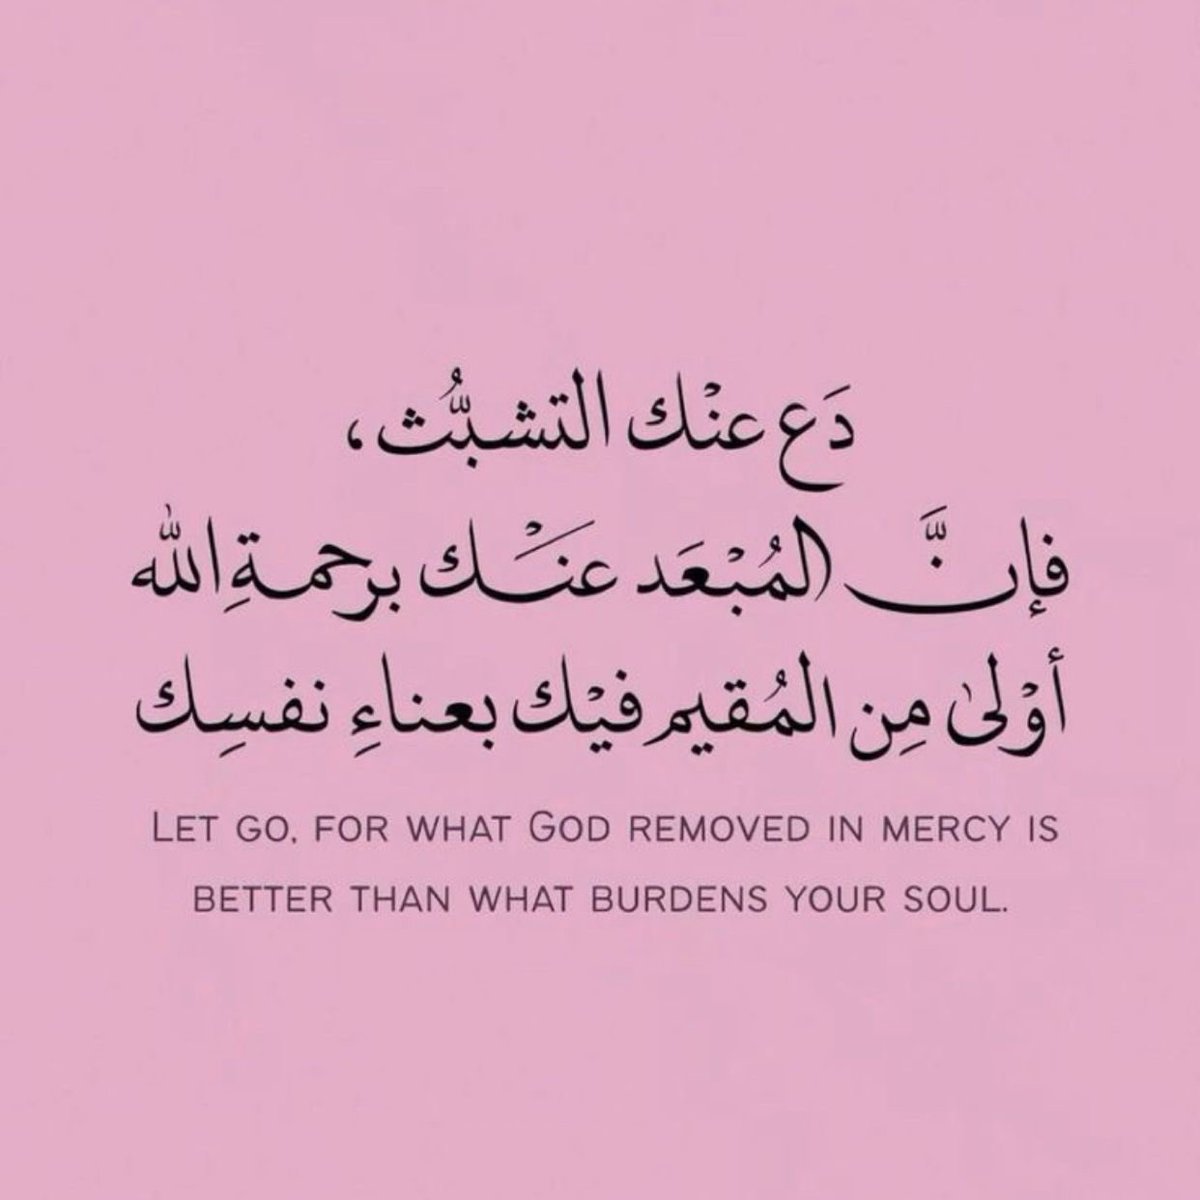 دَع عنْك التشبُّث،
فإنَّ المُبْعَد عنْك برحمةِ الله
أوْلىٰ مِن المُقيم فيْك بعناءِ نفسِك
LET GO, FOR WHAT GOD REMOVED IN MERCY IS
BETTER THAN WHAT BURDENS YOUR SOUL.